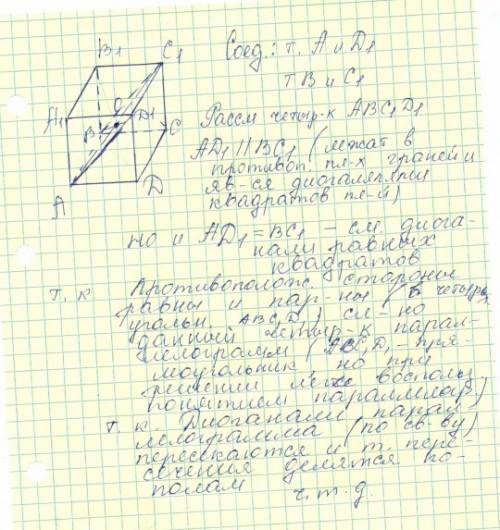 B1
C1
Соед.: т. А и D1
т В и С1
A1
O
D1
B
C
Рассм четыр-к ABC1D1
AD1 || BC1 (лежат в
противоп. пл-х граней и
яв-ся диогалялями
квадратов пл-й)
A
D
но и AD1 = BC1 - см. диога-
нали равных
квадратов
т. к Противополож. стороны
равны и пар-ны (в четырх
угольн. ABC1D1) сл-но
данный четыр-к парал-
лелограмм (ABC1D1 - пря-
моугольник, но при
решении легче воспольз.
понятием параллелогр)
т. к. Диоганали парал
лелограмма (по св-ву)
пересекаются и т. пере-
сечения делятся по-
полам
ч. т. д.